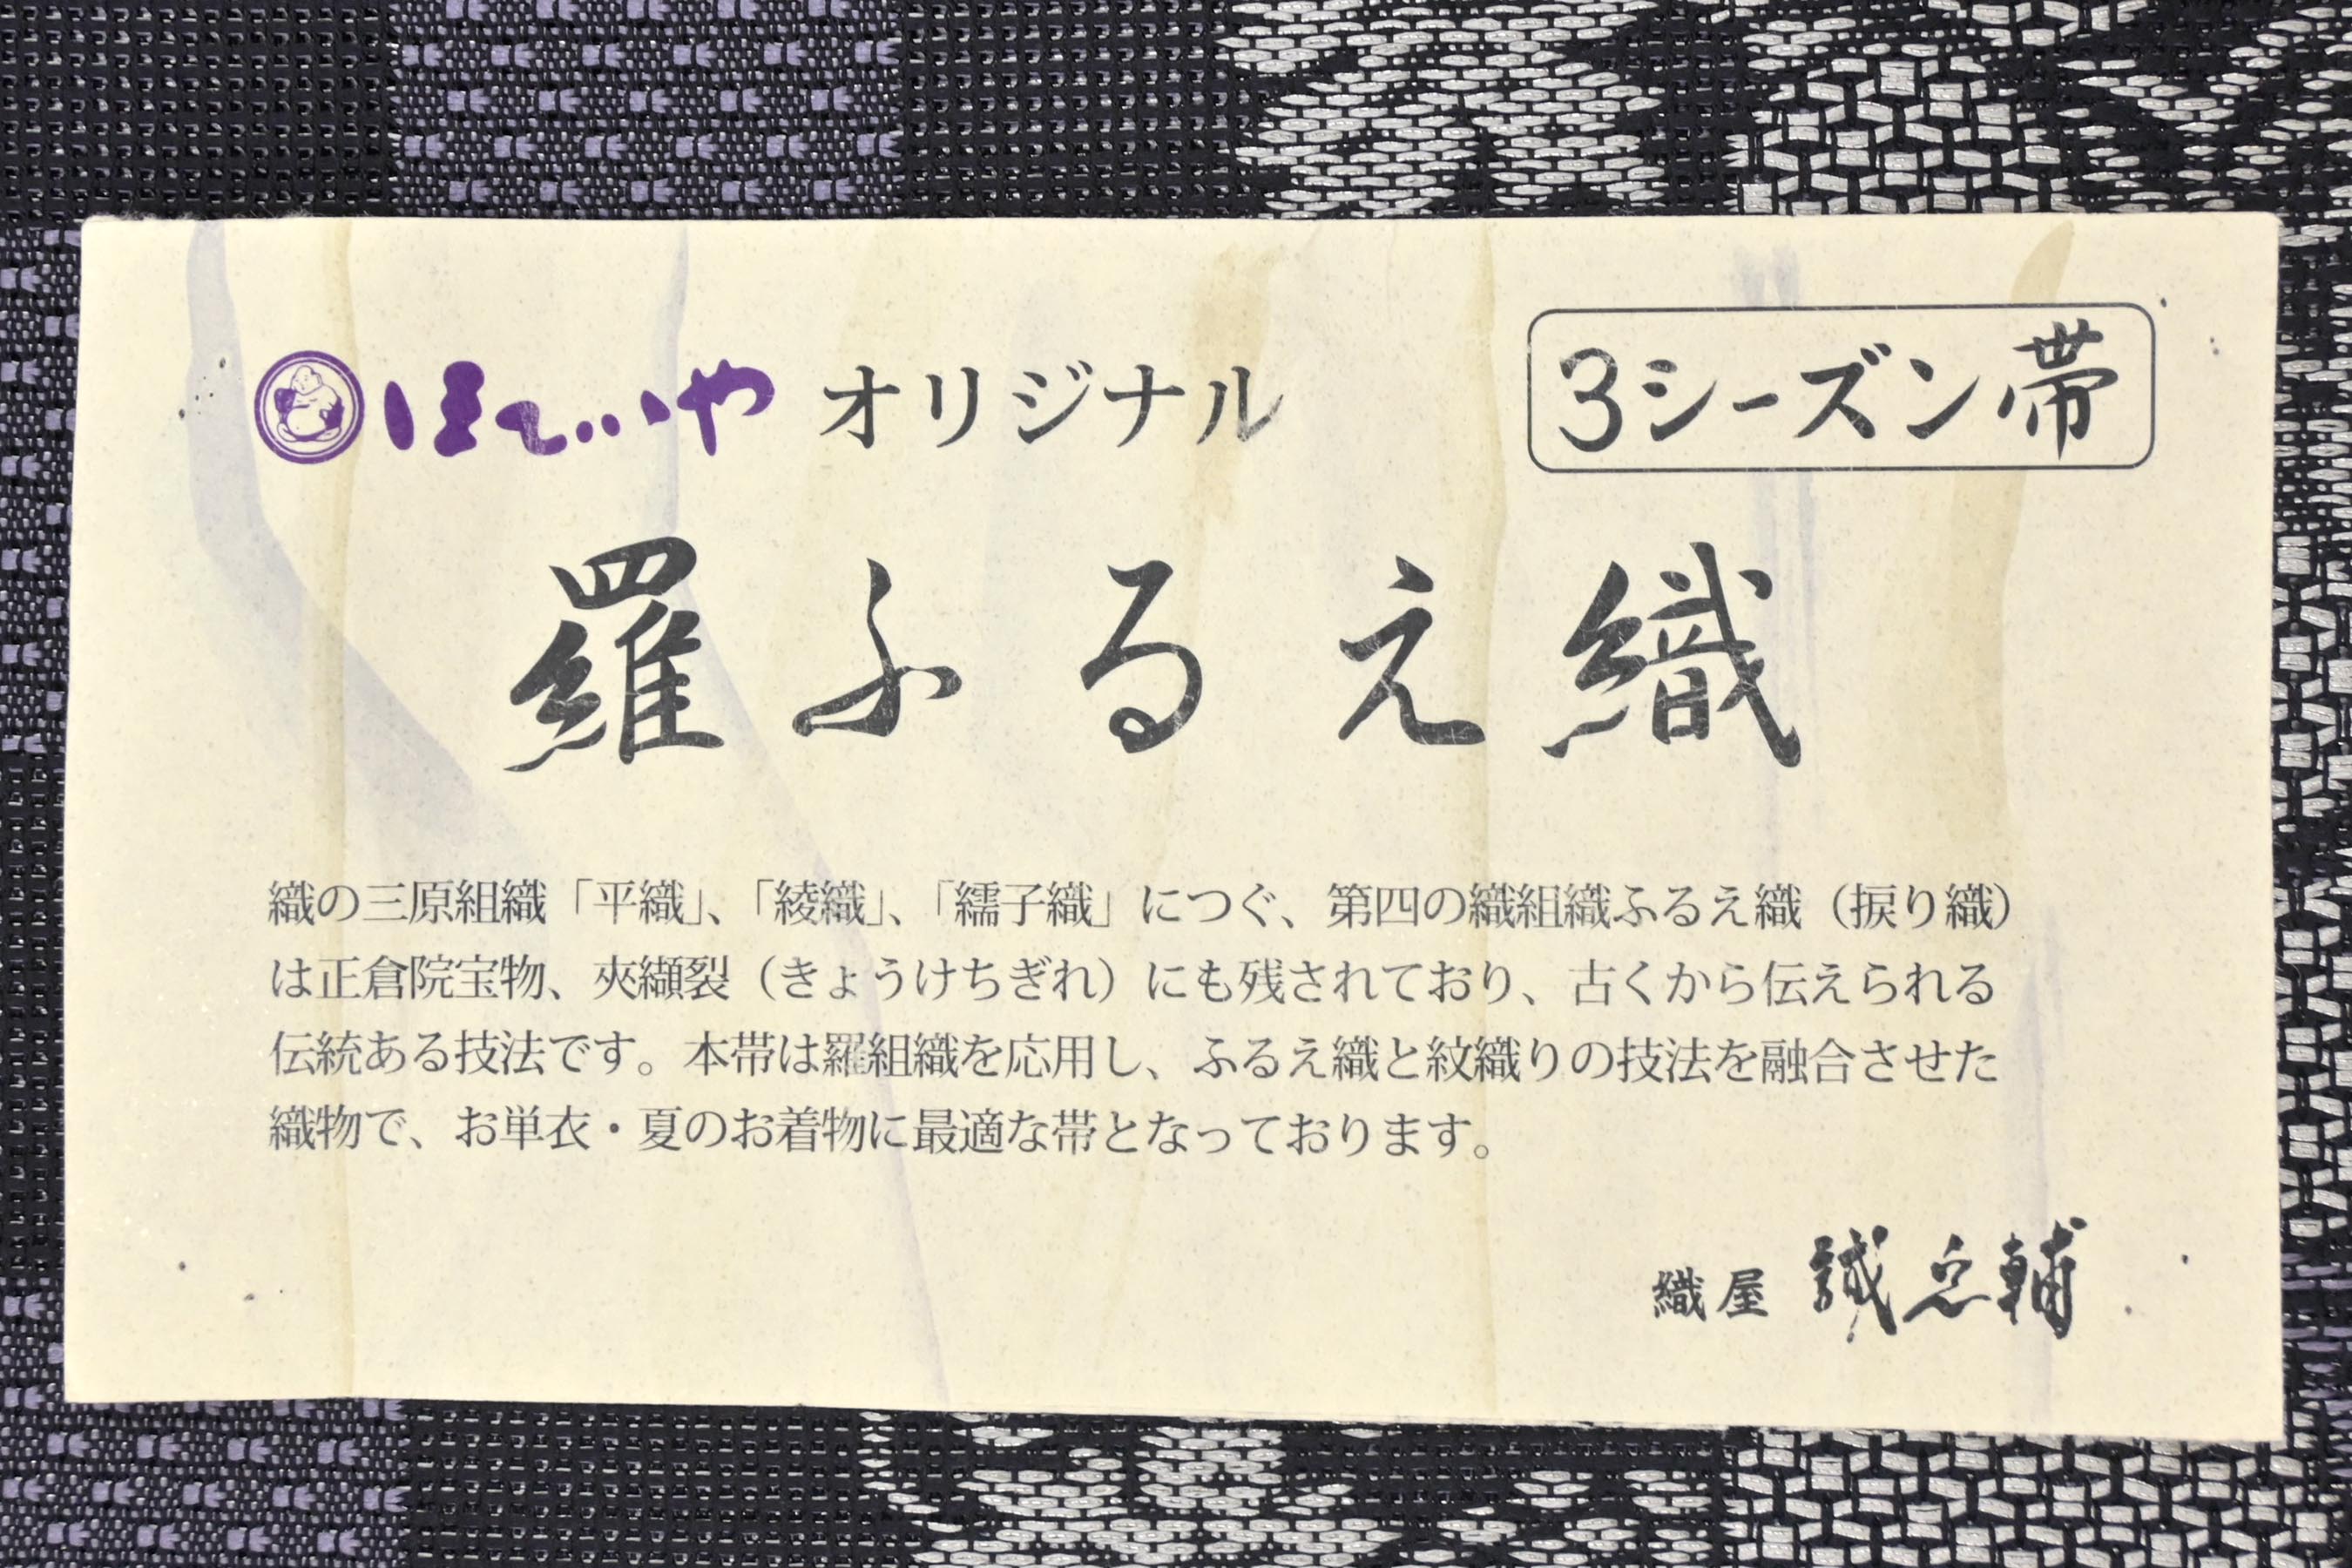 ほていや オリジナル
3シーズン帯
羅ふるえ織
織の三原組織「平織」、「綾織」、「繻子織」につぐ、第四の織組織ふるえ織（捩り織）
は正倉院宝物、夾纈裂（きょうけちぎれ）にも残されており、古くから伝えられる
伝統ある技法です。本帯は羅組織を応用し、ふるえ織と紋織りの技法を融合させた
織物で、お単衣・夏のお着物に最適な帯となっております。
織屋 誠之輔